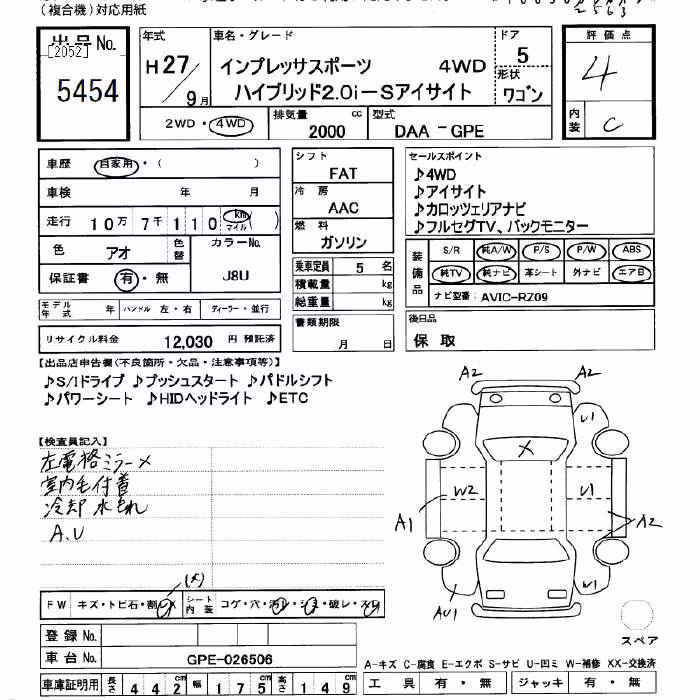 (複合機)対応用紙
2563
出品No.
[2052]
5454
年式
H27/
9月
車名・グレード
インプレッサスポーツ 4WD
ハイブリッド2.0i-Sアイサイト
ドア
5
形状
ワゴン
評価点
4
内装
C
2WD・4WD
排気量
2000 cc
型式
DAA-GPE
車歴 自家用・( )
車検 年 月
走行 10万7千110 km マイル ( )
色 アオ
色替
カラーNo.
J8U
保証書 有・無
モデル年式 年 ハンドル 左・右 ディーラー・並行
リサイクル料金 12,030 円 預託済
シフト
FAT
冷房
AAC
燃料
ガソリン
乗車定員 5 名
積載量 kg
総重量 kg
書類期限
月 日
セールスポイント
♪4WD
♪アイサイト
♪カロッツェリアナビ
♪フルセグTV、バックモニター
装備品
S/R 純A/W P/S P/W ABS
純TV 純ナビ 革シート 外ナビ エアB
ナビ型番: AVIC-RZ09
後日品
保 取
【出品店申告欄(不良箇所・欠品・注意事項等)】
♪S/Iドライブ ♪プッシュスタート ♪パドルシフト
♪パワーシート ♪HIDヘッドライト ♪ETC
【検査員記入】
左電格ミラーメ
室内毛付着
冷却水もれ
A.U
(X)
FW キズ・トビ石・割・X
シート内装 コゲ・穴・汚レ・シミ・破レ・スレ
登録No.
車台No. GPE-026506
車庫証明用 長さ 442 cm 幅 175 cm 高さ 149 cm
A2 A2
U1
X
W2 U1
A1 A2
AU1
スペア
A-キズ C-腐食 E-エクボ S-サビ U-凹ミ W-補修 XX-交換済
工具 有・無 ジャッキ 有・無